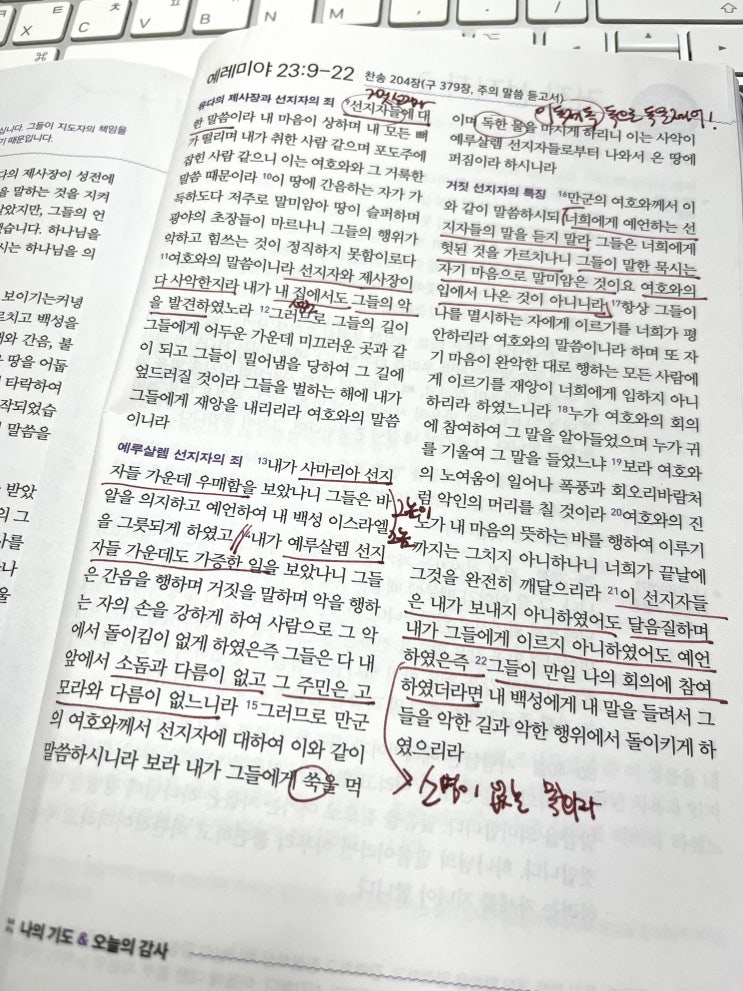 X
C
V
B
N
M
예레미야 23:9-22 찬송 204장(구 379장, 주의 말씀 듣고서)
십니다. 그들이 지도자의 책임을
기 때문입니다.
다의 제사장이 성전에
을 말하는 것을 지켜
았지만, 그들의 언
습니다. 하나님을
시는 하나님을 의
보이기는커녕
르치고 백성을
와 간음, 불
땅을 어둡
타락하여
작되었습
말씀을
받았
의 그
를
나
울
유다의 제사장과 선지자의 죄 9선지자들에 대
한 말씀이라 내 마음이 상하며 내 모든 뼈
가 떨리며 내가 취한 사람 같으며 포도주에
잡힌 사람 같으니 이는 여호와와 그 거룩한
말씀 때문이라 10이 땅에 간음하는 자가 가
득하도다 저주로 말미암아 땅이 슬퍼하며
광야의 초장들이 마르나니 그들의 행위가
악하고 힘쓰는 것이 정직하지 못함이로다
11여호와의 말씀이니라 선지자와 제사장이
다 사악한지라 내가 내 집에서도 그들의 악
을 발견하였노라 12그러므로 그들의 길이
그들에게 어두운 가운데 미끄러운 곳과 같
이 되고 그들이 밀어냄을 당하여 그 길에
엎드러질 것이라 그들을 벌하는 해에 내가
그들에게 재앙을 내리리라 여호와의 말씀
이니라
예루살렘 선지자의 죄 13내가 사마리아 선지
자들 가운데 우매함을 보았나니 그들은 바
알을 의지하고 예언하여 내 백성 이스라엘
을 그릇되게 하였고 14내가 예루살렘 선지
자들 가운데도 가증한 일을 보았나니 그들
은 간음을 행하며 거짓을 말하며 악을 행하
는 자의 손을 강하게 하여 사람으로 그 악
에서 돌이킴이 없게 하였은즉 그들은 다 내
앞에서 소돔과 다름이 없고 그 주민은 고
모라와 다름이 없느니라 15그러므로 만군
의 여호와께서 선지자에 대하여 이와 같이
말씀하시니라 보라 내가 그들에게 쑥을 먹
그놈이
그놈
이며 독한 물을 마시게 하리니 이는 사악이
예루살렘 선지자들로부터 나와서 온 땅에
퍼짐이라 하시니라
거짓 선지자의 특징 16만군의 여호와께서 이
와 같이 말씀하시되 너희에게 예언하는 선
지자들의 말을 듣지 말라 그들은 너희에게
헛된 것을 가르치나니 그들이 말한 묵시는
자기 마음으로 말미암은 것이요 여호와의
입에서 나온 것이 아니니라 17항상 그들이
나를 멸시하는 자에게 이르기를 너희가 평
안하리라 여호와의 말씀이니라 하며 또 자
기 마음이 완악한 대로 행하는 모든 사람에
게 이르기를 재앙이 너희에게 임하지 아니
하리라 하였느니라 18누가 여호와의 회의
에 참여하여 그 말을 알아들었으며 누가 귀
를 기울여 그 말을 들었느냐 19보라 여호와
의 노여움이 일어나 폭풍과 회오리바람처
럼 악인의 머리를 칠 것이라 20여호와의 진
노가 내 마음의 뜻하는 바를 행하여 이루기
까지는 그치지 아니하나니 너희가 끝날에
그것을 완전히 깨달으리라 21이 선지자들
은 내가 보내지 아니하였어도 달음질하며
내가 그들에게 이르지 아니하였어도 예언
하였은즉 22그들이 만일 나의 회의에 참여
하였더라면 내 백성에게 내 말을 들려서 그
들을 악한 길과 악한 행위에서 돌이키게 하
였으리라
소명이 없는 목회자
나의 기도 & 오늘의 감사